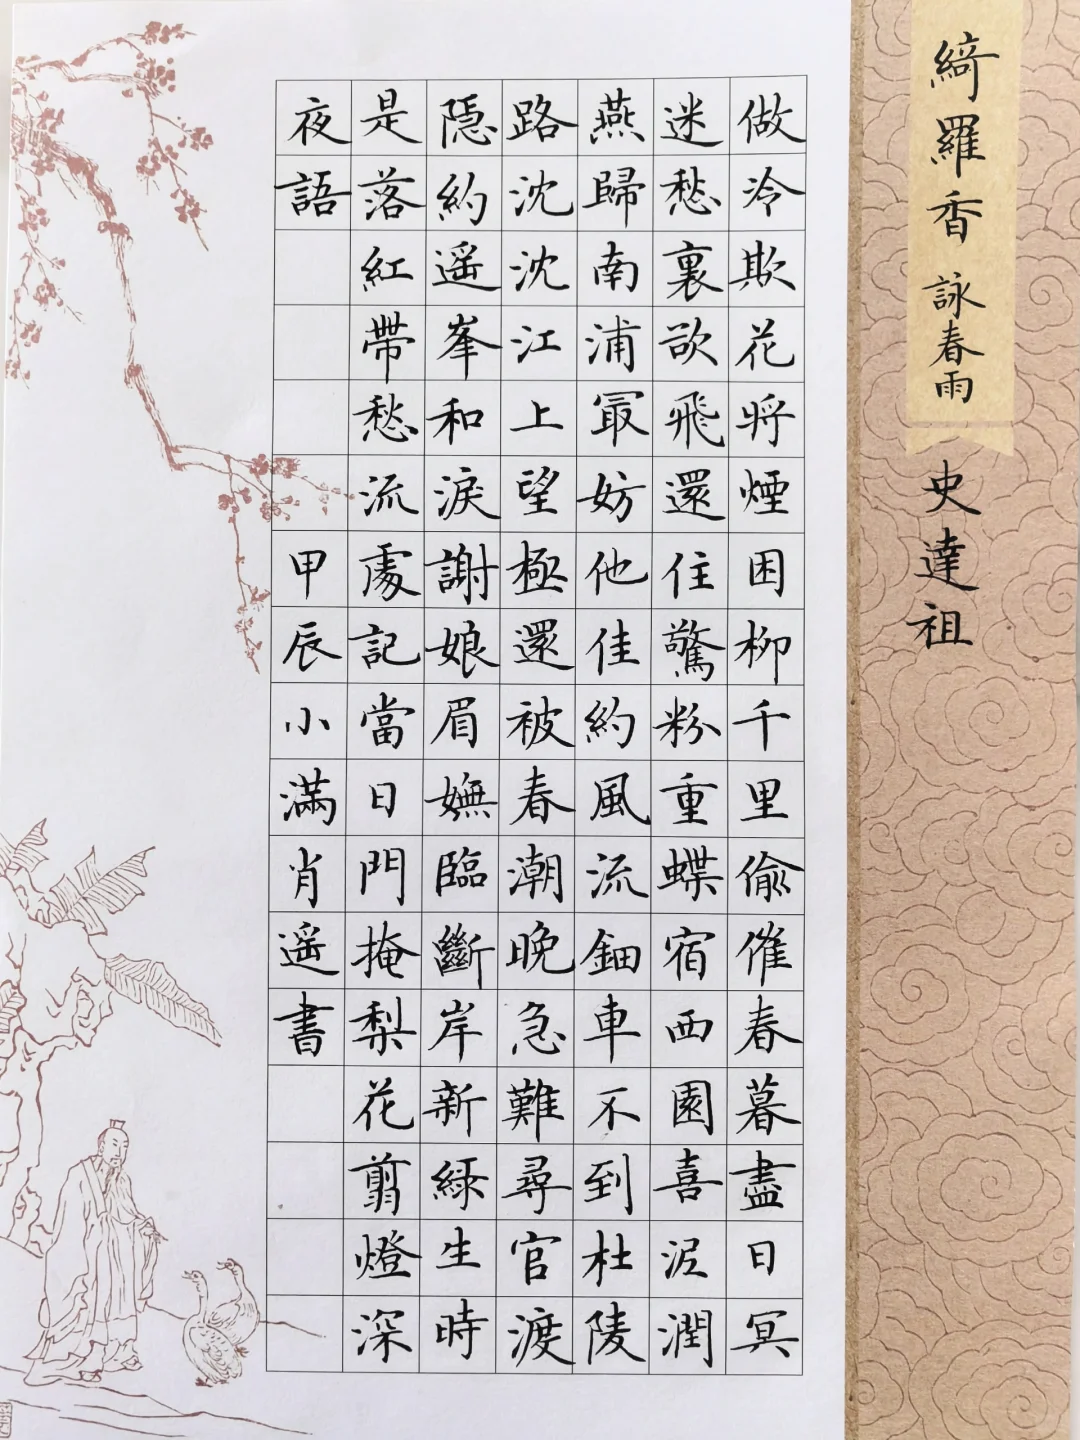 綺羅香 詠春雨
史達祖
做冷欺花將煙困柳千里偷催春暮盡日冥
迷愁裏欲飛還住驚粉重蝶宿西園喜泥潤
燕歸南浦冣妨他佳約風流鈿車不到杜陵
路沈沈江上望極還被春潮晚急難尋官渡
隱約遥峯和淚謝娘眉嫵臨斷岸新緑生時
是落紅帶愁流處記當日門掩梨花翦燈深
夜語 甲辰小滿肖遥書